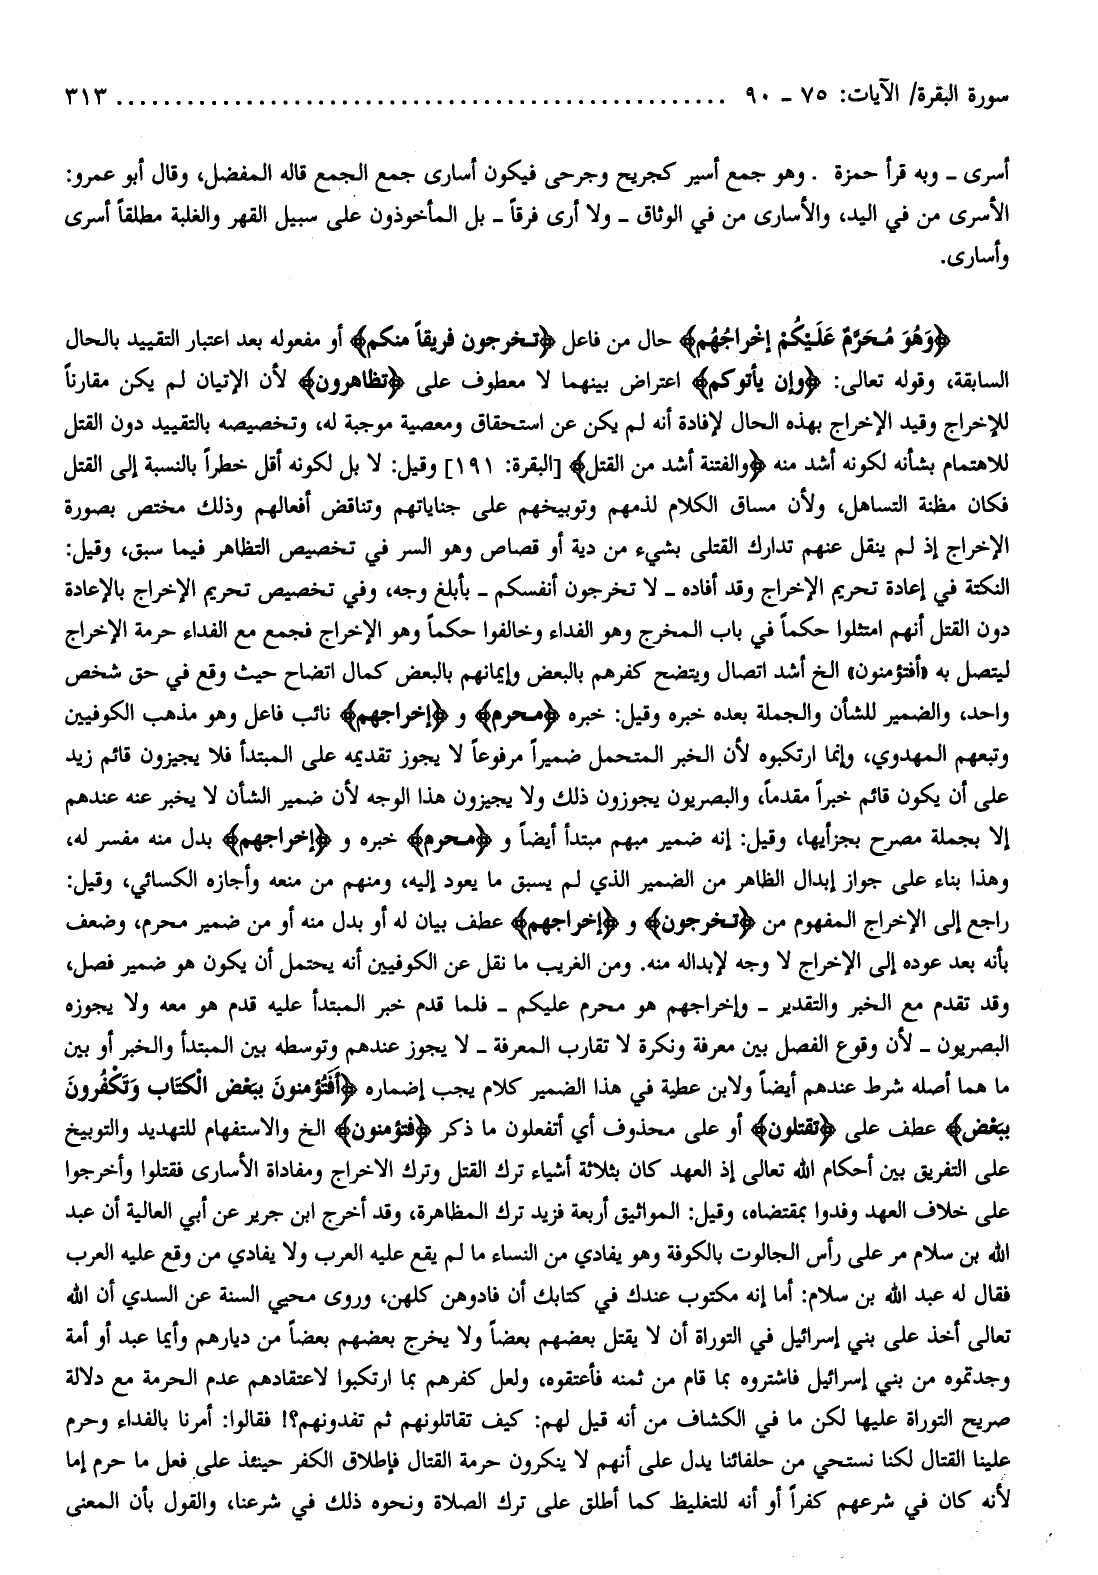 سورة البقرة/ الآيات: ٧٥ ـ ٩٠ .................................................... ٣١٣
أسرى ـ وبه قرأ حمزة . وهو جمع أسير كجريح وجرحى فيكون أسارى جمع الجمع قاله المفضل، وقال أبو عمرو:
الأسرى من في اليد، والأسارى من في الوثاق ـ ولا أرى فرقاً ـ بل المأخوذون على سبيل القهر والغلبة مطلقاً أسرى
وأسارى.
﴿وَهُوَ مُحَرَّمٌ عَلَيْكُمْ إخْرَاجُهُم﴾ حال من فاعل ﴿تخرجون فريقاً منكم﴾ أو مفعوله بعد اعتبار التقييد بالحال
السابقة، وقوله تعالى: ﴿وإن يأتوكم﴾ اعتراض بينهما لا معطوف على ﴿تظاهرون﴾ لأن الإتيان لم يكن مقارناً
للإخراج وقيد الإخراج بهذه الحال لإفادة أنه لم يكن عن استحقاق ومعصية موجبة له، وتخصيصه بالتقييد دون القتل
للاهتمام بشأنه لكونه أشد منه ﴿والفتنة أشد من القتل﴾ [البقرة: ١٩١] وقيل: لا بل لكونه أقل خطراً بالنسبة إلى القتل
فكان مظنة التساهل، ولأن مساق الكلام لذمهم وتوبيخهم على جناياتهم وتناقض أفعالهم وذلك مختص بصورة
الإخراج إذ لم ينقل عنهم تدارك القتلى بشيء من دية أو قصاص وهو السر في تخصيص التظاهر فيما سبق، وقيل:
النكتة في إعادة تحريم الإخراج وقد أفاده ـ لا تخرجون أنفسكم ـ بأبلغ وجه، وفي تخصيص تحريم الإخراج بالإعادة
دون القتل أنهم امتثلوا حكماً في باب المخرج وهو الفداء وخالفوا حكماً وهو الإخراج فجمع مع الفداء حرمة الإخراج
ليتصل به «أفتؤمنون» الخ أشد اتصال ويتضح كفرهم بالبعض وإيمانهم بالبعض كمال اتضاح حيث وقع في حق شخص
واحد، والضمير للشأن والجملة بعده خبره وقيل: خبره ﴿محرم﴾ و ﴿إخراجهم﴾ نائب فاعل وهو مذهب الكوفيين
وتبعهم المهدوي، وإنما ارتكبوه لأن الخبر المتحمل ضميراً مرفوعاً لا يجوز تقديمه على المبتدأ فلا يجيزون قائم زيد
على أن يكون قائم خبراً مقدماً، والبصريون يجوزون ذلك ولا يجيزون هذا الوجه لأن ضمير الشأن لا يخبر عنه عندهم
إلا بجملة مصرح بجزأيها، وقيل: إنه ضمير مبهم مبتدأ أيضاً و ﴿محرم﴾ خبره و ﴿إخراجهم﴾ بدل منه مفسر له،
وهذا بناء على جواز إبدال الظاهر من الضمير الذي لم يسبق ما يعود إليه، ومنهم من منعه وأجازه الكسائي، وقيل:
راجع إلى الإخراج المفهوم من ﴿تخرجون﴾ و ﴿إخراجهم﴾ عطف بيان له أو بدل منه أو من ضمير محرم، وضعف
بأنه بعد عوده إلى الإخراج لا وجه لإبداله منه. ومن الغريب ما نقل عن الكوفيين أنه يحتمل أن يكون هو ضمير فصل،
وقد تقدم مع الخبر والتقدير ـ وإخراجهم هو محرم عليكم ـ فلما قدم خبر المبتدأ عليه قدم هو معه ولا يجوزه
البصريون ـ لأن وقوع الفصل بين معرفة ونكرة لا تقارب المعرفة ـ لا يجوز عندهم وتوسطه بين المبتدأ والخبر أو بين
ما هما أصله شرط عندهم أيضاً ولابن عطية في هذا الضمير كلام يجب إضماره ﴿أَفَتُؤمنونَ ببَعْض الْكتَاب وَتَكْفُرونَ
ببَعْض﴾ عطف على ﴿تقتلون﴾ أو على محذوف أي أتفعلون ما ذكر ﴿فتؤمنون﴾ الخ والاستفهام للتهديد والتوبيخ
على التفريق بين أحكام الله تعالى إذ العهد كان بثلاثة أشياء ترك القتل وترك الاخراج ومفاداة الأسارى فقتلوا وأخرجوا
على خلاف العهد وفدوا بمقتضاه، وقيل: المواثيق أربعة فزيد ترك المظاهرة، وقد أخرج ابن جرير عن أبي العالية أن عبد
الله بن سلام مر على رأس الجالوت بالكوفة وهو يفادي من النساء ما لم يقع عليه العرب ولا يفادي من وقع عليه العرب
فقال له عبد الله بن سلام: أما إنه مكتوب عندك في كتابك أن فادوهن كلهن، وروى محيي السنة عن السدي أن الله
تعالى أخذ على بني إسرائيل في التوراة أن لا يقتل بعضهم بعضاً ولا يخرج بعضهم بعضاً من ديارهم وأيما عبد أو أمة
وجدتموه من بني إسرائيل فاشتروه بما قام من ثمنه فأعتقوه، ولعل كفرهم بما ارتكبوا لاعتقادهم عدم الحرمة مع دلالة
صريح التوراة عليها لكن ما في الكشاف من أنه قيل لهم: كيف تقاتلونهم ثم تفدونهم؟! فقالوا: أمرنا بالفداء وحرم
علينا القتال لكنا نستحي من حلفائنا يدل على أنهم لا ينكرون حرمة القتال فإطلاق الكفر حينئذ على فعل ما حرم إما
لأنه كان في شرعهم كفراً أو أنه للتغليظ كما أطلق على ترك الصلاة ونحوه ذلك في شرعنا، والقول بأن المعنى